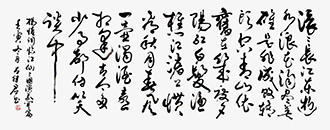 滚滚长江东逝
水浪花淘尽英
雄是非成败转
头空青山依
旧在几度夕
阳红白发渔
樵江渚上惯
看秋月春风
一壶浊酒喜
相逢古今多
少事都付笑
谈中
杨慎词临江仙